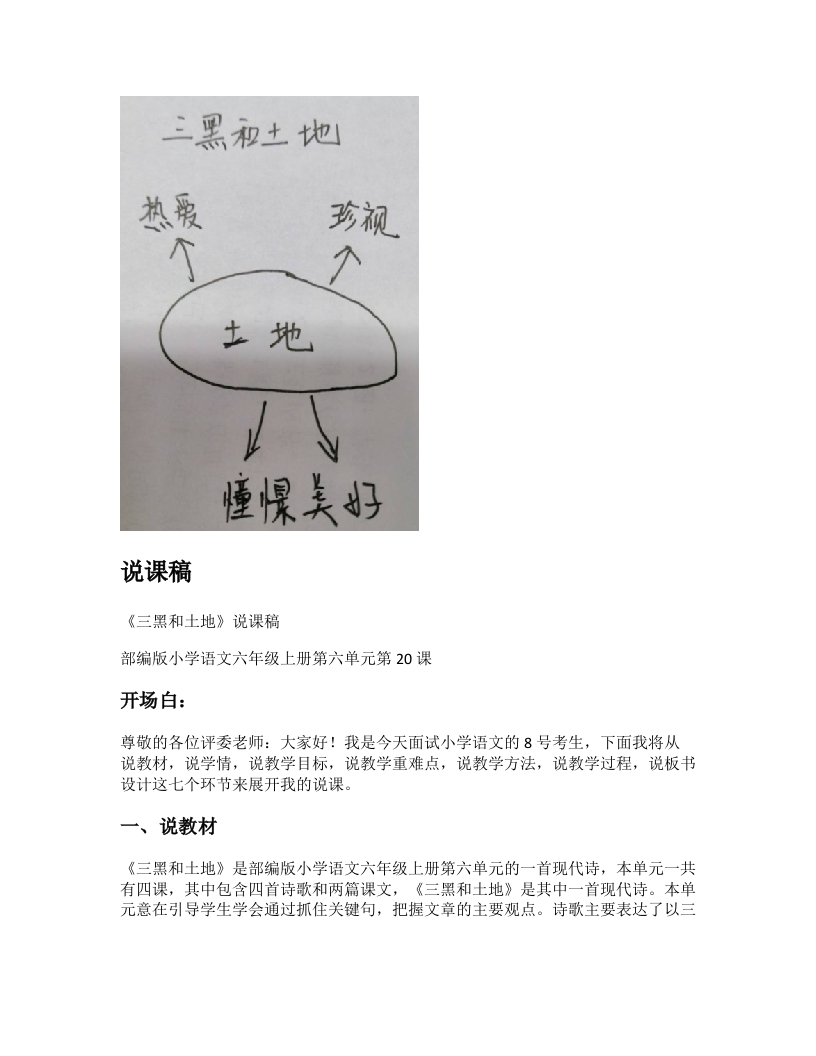 三黑和土地
热爱 珍视
土地
憧憬美好
说课稿
《三黑和土地》说课稿
部编版小学语文六年级上册第六单元第 20 课
开场白：
尊敬的各位评委老师：大家好！我是今天面试小学语文的 8 号考生，下面我将从
说教材，说学情，说教学目标，说教学重难点，说教学方法，说教学过程，说板书
设计这七个环节来展开我的说课。
一、说教材
《三黑和土地》是部编版小学语文六年级上册第六单元的一首现代诗，本单元一共
有四课，其中包含四首诗歌和两篇课文，《三黑和土地》是其中一首现代诗。本单
元意在引导学生学会通过抓住关键句，把握文章的主要观点。诗歌主要表达了以三